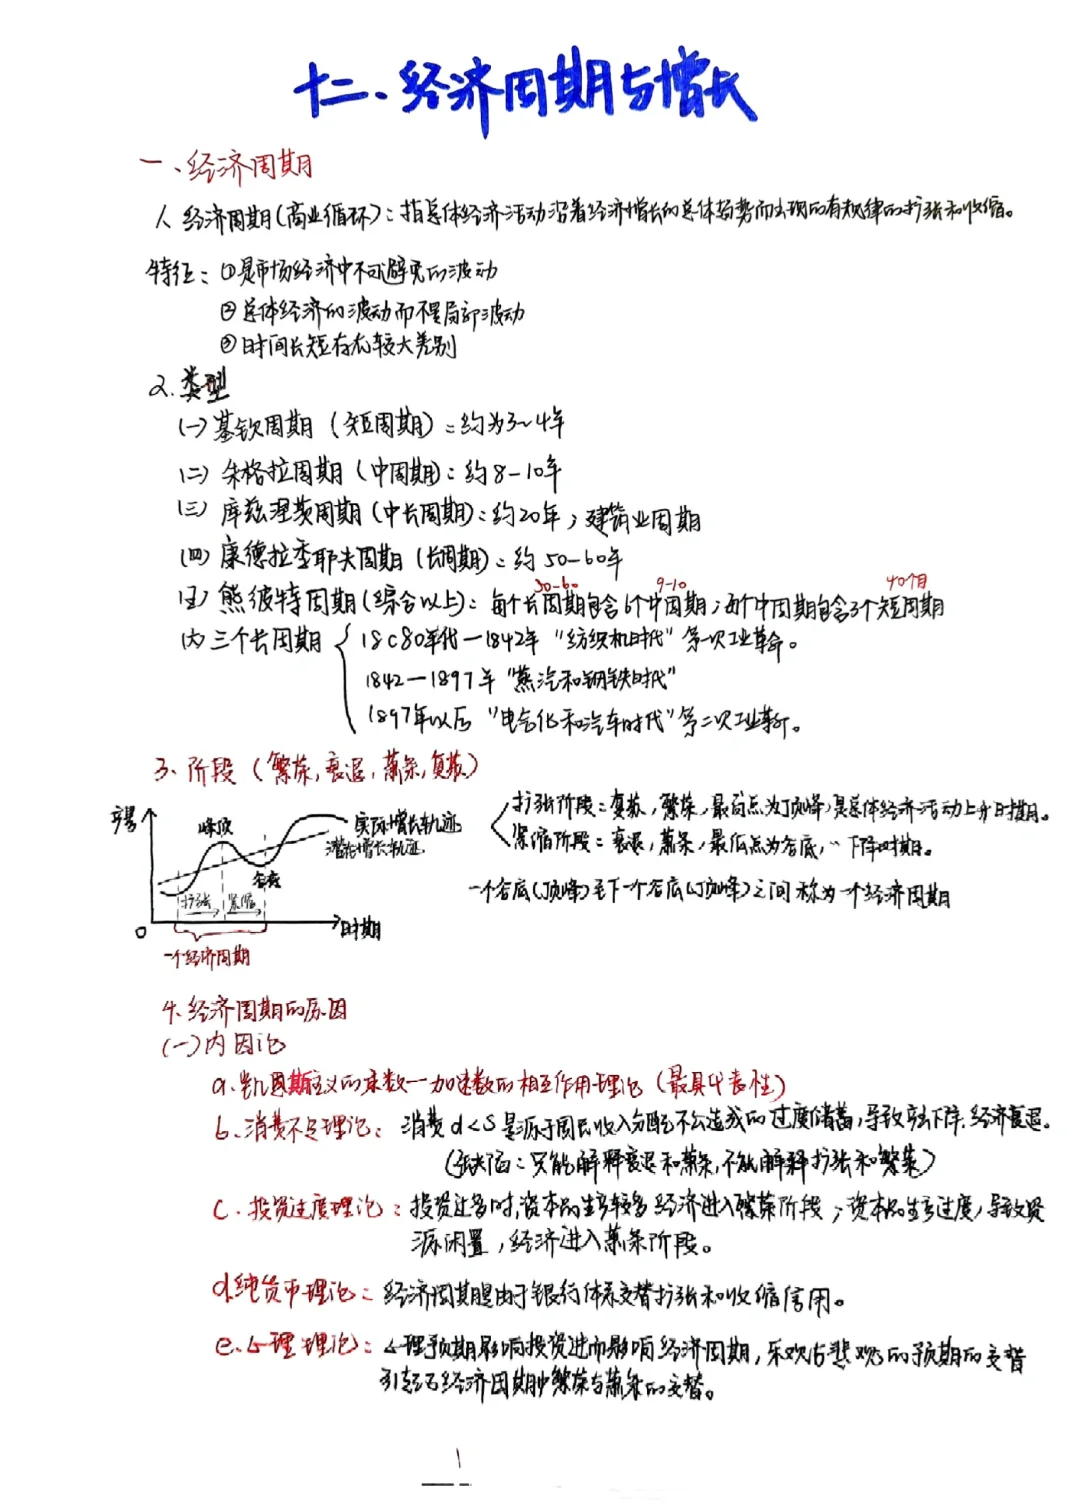 十二、经济周期与增长
一、经济周期
1、经济周期(商业循环)：指总体经济活动沿着经济增长的总体趋势而出现的有规律的扩张和收缩。
特征：①是市场经济中不可避免的波动
②总体经济的波动而不是局部波动
③时间长短存在较大差别
2.类型
(一)基钦周期（短周期）：约为3~4年
(二)朱格拉周期（中周期)：约8-10年
(三)库兹涅茨周期(中长周期)：约20年；建筑业周期
(四)康德拉季耶夫周期（长周期)：约50-60年
50-60 9-10 40个月
(五)熊彼特周期(综合以上)：每个长周期包含6个中周期；每个中周期包含3个短周期
(六)三个长周期
18C80年代—1842年“纺织机时代”第一次工业革命。
1842—1897年“蒸汽和钢铁时代”
1897年以后“电气化和汽车时代”第二次工业革命。
3、阶段（繁荣，衰退，萧条，复苏）
扩张阶段：复苏，繁荣，最高点为顶峰，是总体经济活动上升时期。
峰顶 实际增长轨迹
潜在增长轨迹
紧缩阶段：衰退，萧条，最低点为谷底，〃下降时期。
谷底
扩张 紧缩
一个谷底(顶峰)至下一个谷底(顶峰)之间称为一个经济周期
O 时期
一个经济周期
4.经济周期的原因
(一)内因论
a.凯恩斯主义的乘数—加速数的相互作用理论（最具代表性）
b、消费不足理论：消费d<S是源于国民收入分配不公造成的过度储蓄，导致 下降.经济衰退。
(缺陷：只能解释衰退和萧条，不能解释扩张和繁荣）
c.投资过度理论：投资过多时，资本品生产较多经济进入繁荣阶段；资本品生产过度，导致资
源闲置，经济进入萧条阶段。
d.纯货币理论：经济周期是由于银行体系交替扩张和收缩信用。
e.心理理论：心理预期影响投资进而影响经济周期，乐观与悲观的预期的交替
引起了经济周期中繁荣与萧条的交替。
1